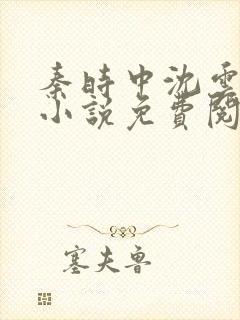 秦時中沈雲
小說免費閱
塞夫魯